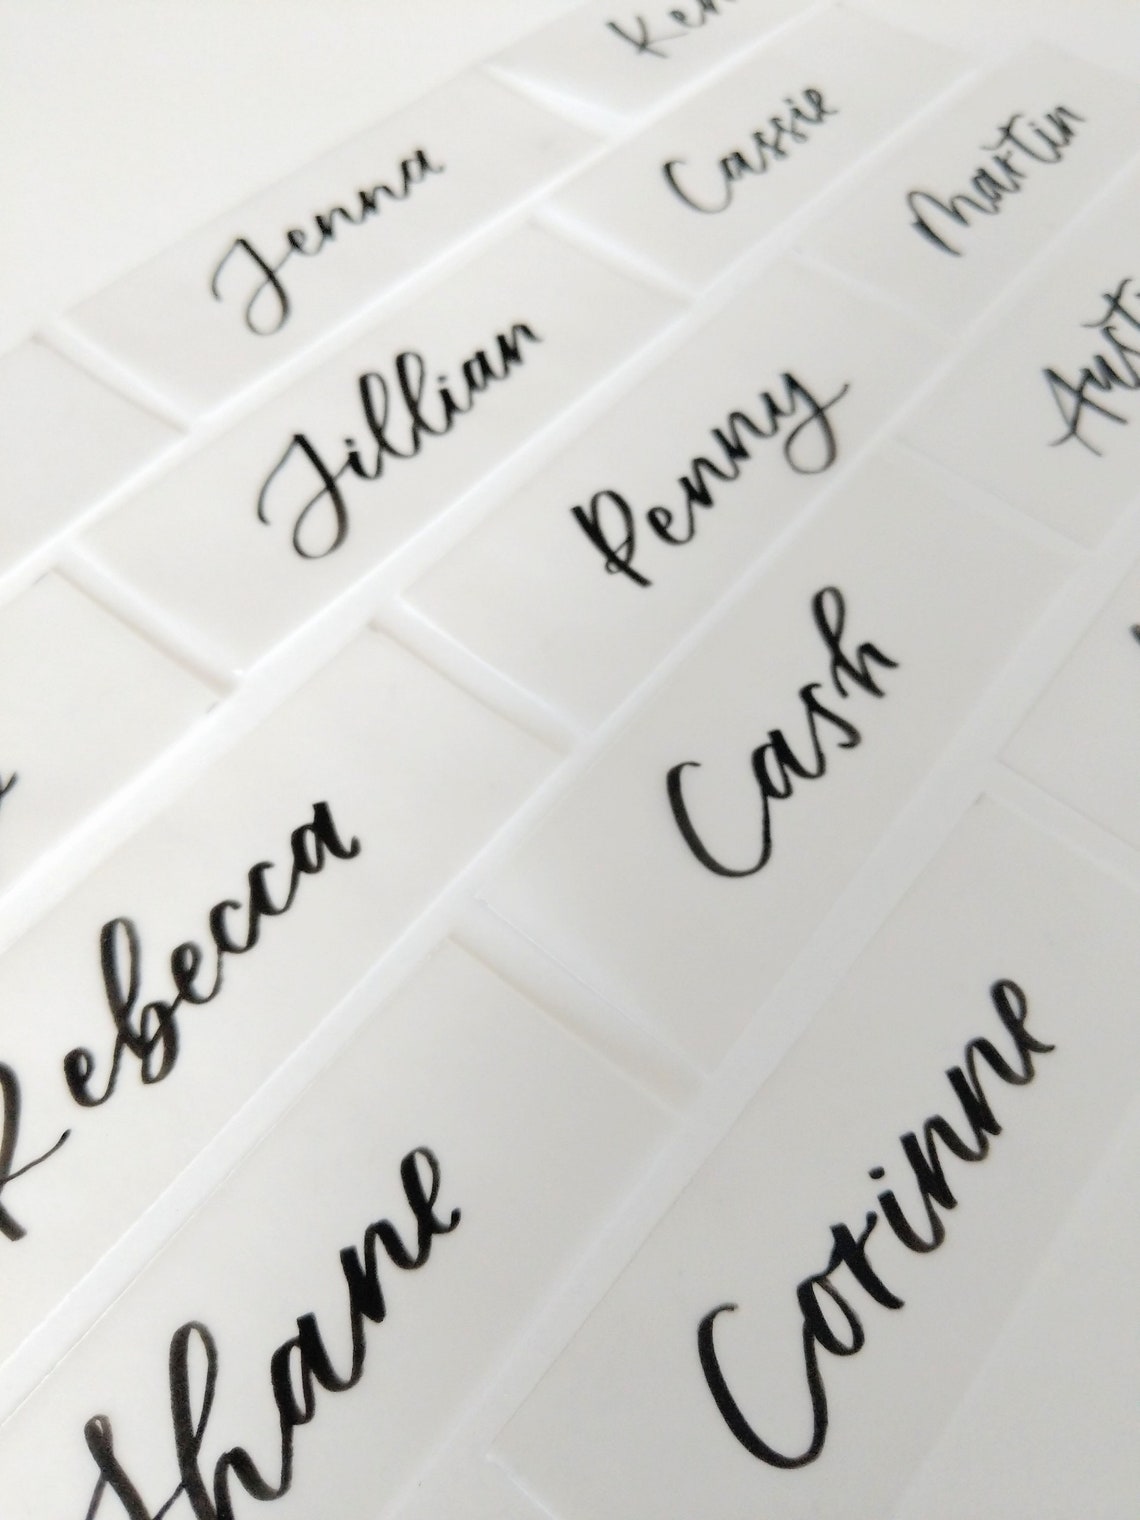 Jenna
Cassie
Martin
Jillian
Penny
Cash
Rebecca
Shane
Corinne